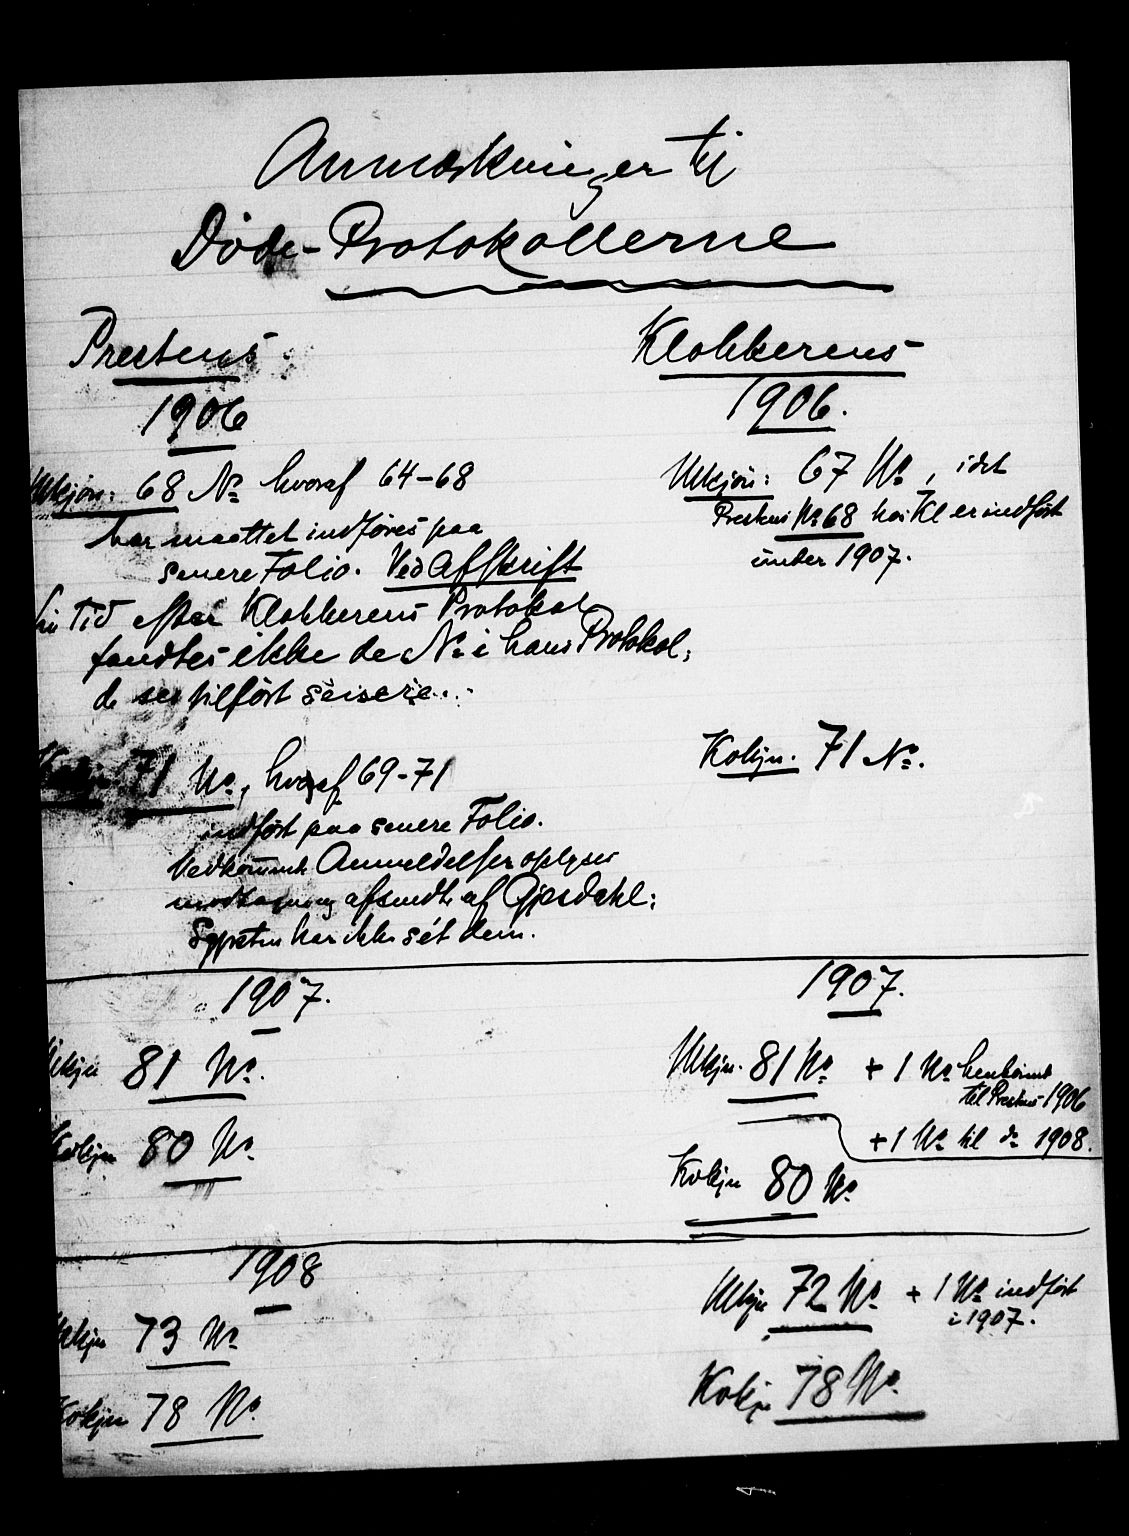 Anmærkninger til
Døde-Protokollerne
Prestens
1906
Mkjøn: 68 No hvoraf 64-68
har maattet indføres paa
senere Folio. Ved Afskrift
sin Tid efter Klokkerens Protokol
fandtes ikke de No i hans Protokol;
de sees tilført senere...
Kvkjn 71 No, hvoraf 69-71
indført paa senere Folio.
Vedkomm Anmeldelser oplyses
modtagning afsendt af Gjesdahl;
har ikke sét dem.
Klokkerens
1906.
Mkjøn: 67 No, idet
Prestens No 68 hos Kl er indført
under 1907.
Kvkjn. 71 No.
1907.
Mkjn 81 No.
Kvkjn 80 No.
1907.
Mkjn. 81 No + 1 No henført
til Prestens 1906
+ 1 No til do 1908.
Kvkjn 80 No
1908
Mkjn 73 No
Kvkjn 78 No.
Mkjn 72 No + 1 No indført
i 1907.
Kvkjn 78 No.